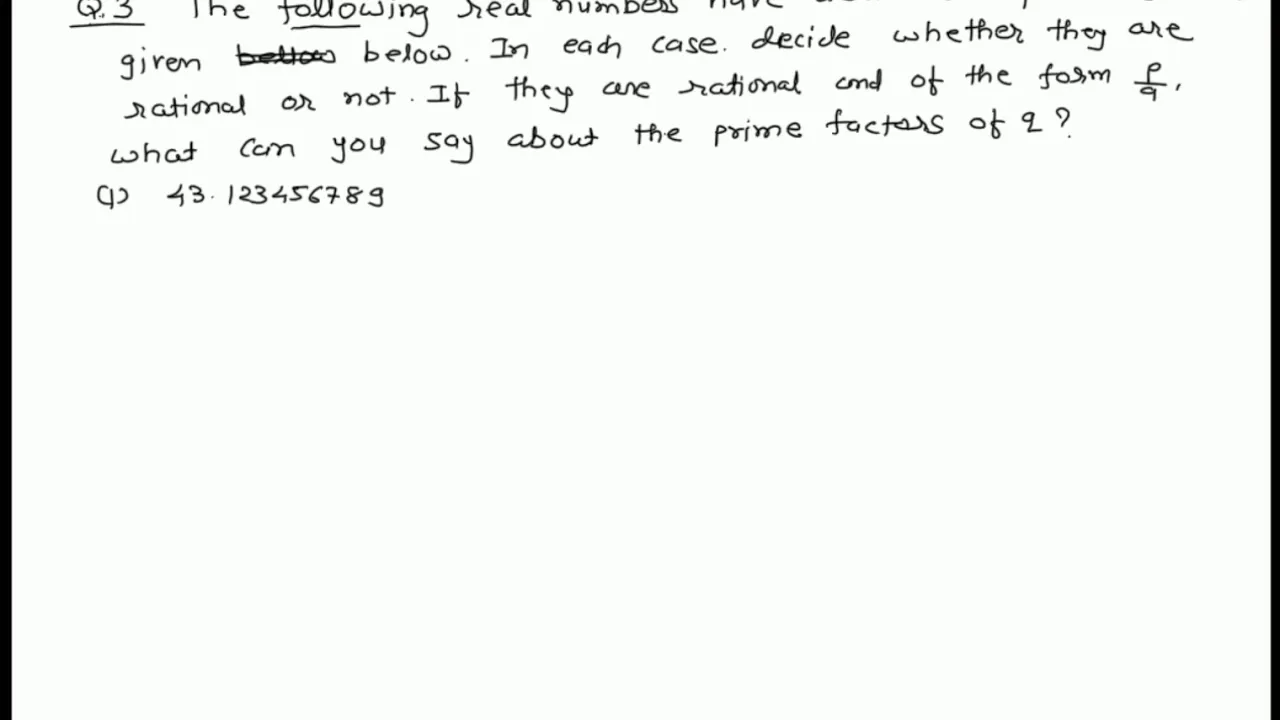 Q.3 The following real numbers have
given below. In each case. decide whether they are
rational or not. If they are rational and of the form p/q,
what can you say about the prime factors of q?
(1) 43.123456789